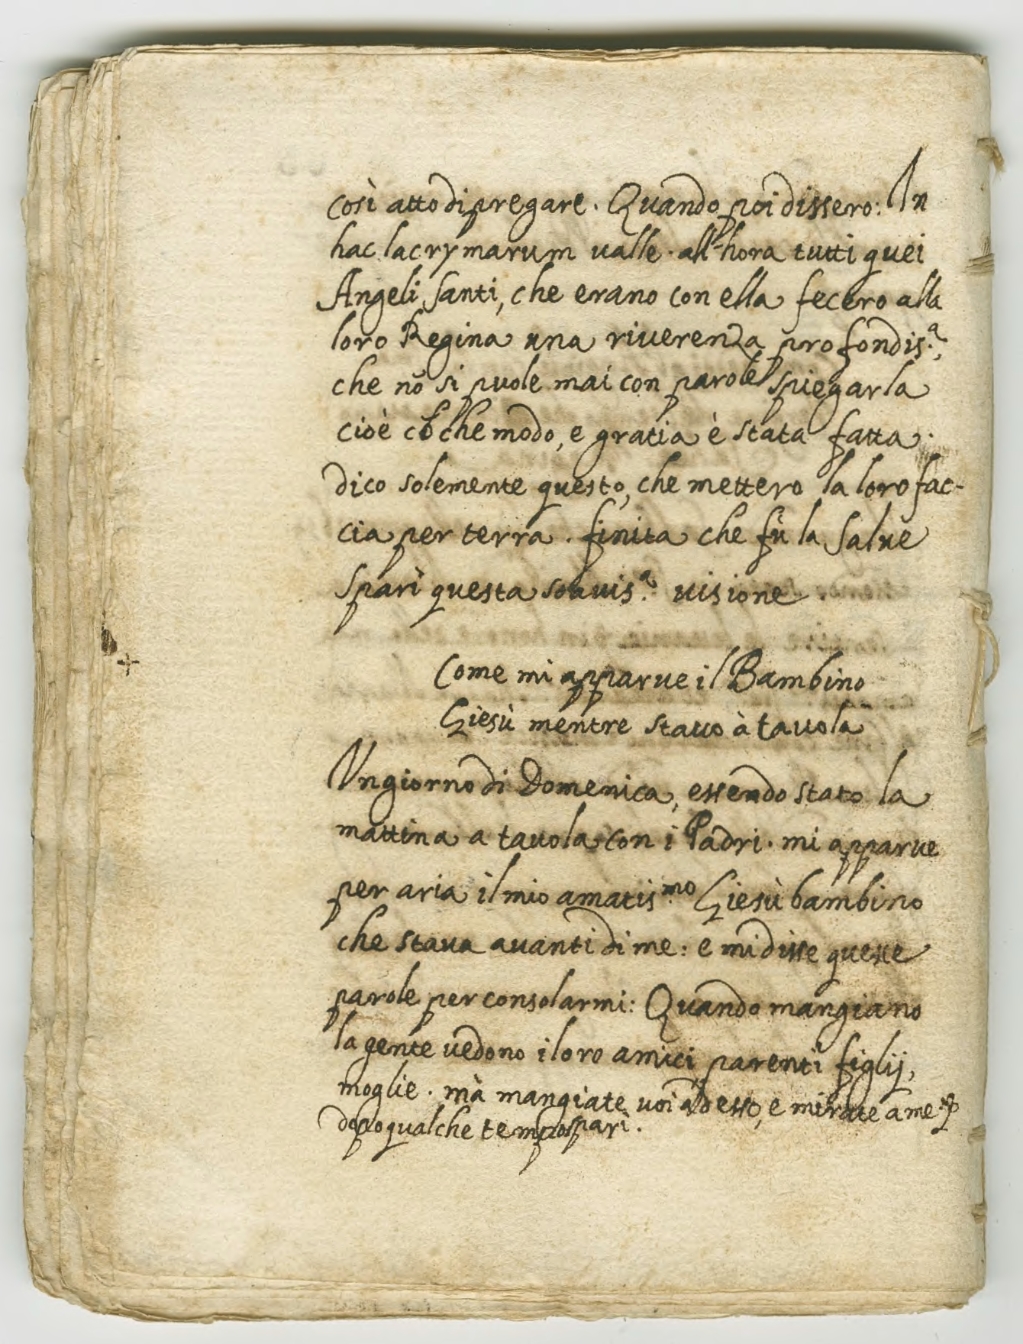 così atto di pregare. Quando poi dissero: In
hac lacrymarum valle. all'hora tutti quei
Angeli santi, che erano con ella fecero alla
loro Regina una riverenza profondis.ª,
che nõ si puole mai con parole spiegarla
cioè che modo, e gratia è stata fatta.
dico solemente questo, che mettero la loro fac-
cia per terra. finita che fù la Salue
sparì questa souuis.ª uisione.
Come mi apparue il Bambino
Giesù mentre stauo à tauola
Un giorno di Domenica, essendo stato la
mattina a tauola con i Padri. mi apparue
per aria il mio amatis.mo Giesù bambino
che staua auanti di me: e mi disse queste
parole per consolarmi: Quando mangiano
la gente uedono i loro amici parenti figlij,
moglie. mà mangiate uoi adesso, e mirate a me.
dopo qualche tempo sparì.